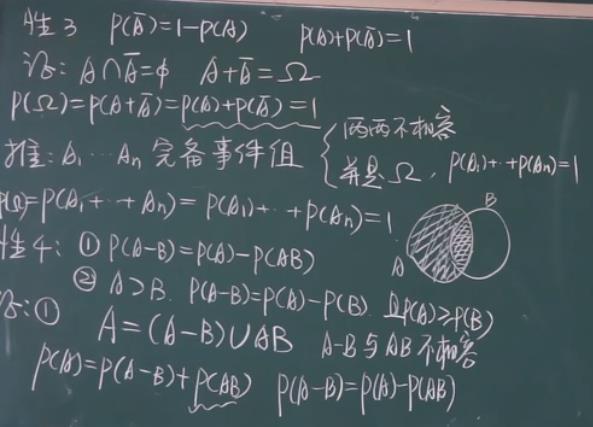 性3 P(A̅)=1-P(A) P(A)+P(A̅)=1
证: A∩A̅=φ A+A̅=Ω
P(Ω)=P(A+A̅)=P(A)+P(A̅)=1
推: A₁…Aₙ 完备事件组 { 两两不相容
并是Ω, P(A₁)+…+P(Aₙ)=1
P(Ω)=P(A₁+…+Aₙ)=P(A₁)+…+P(Aₙ)=1
A B
性4: ① P(A-B)=P(A)-P(AB)
② A⊃B. P(A-B)=P(A)-P(B). 且P(A)≥P(B)
证:① A=(A-B)∪AB A-B与AB不相容
P(A)=P(A-B)+P(AB) P(A-B)=P(A)-P(AB)